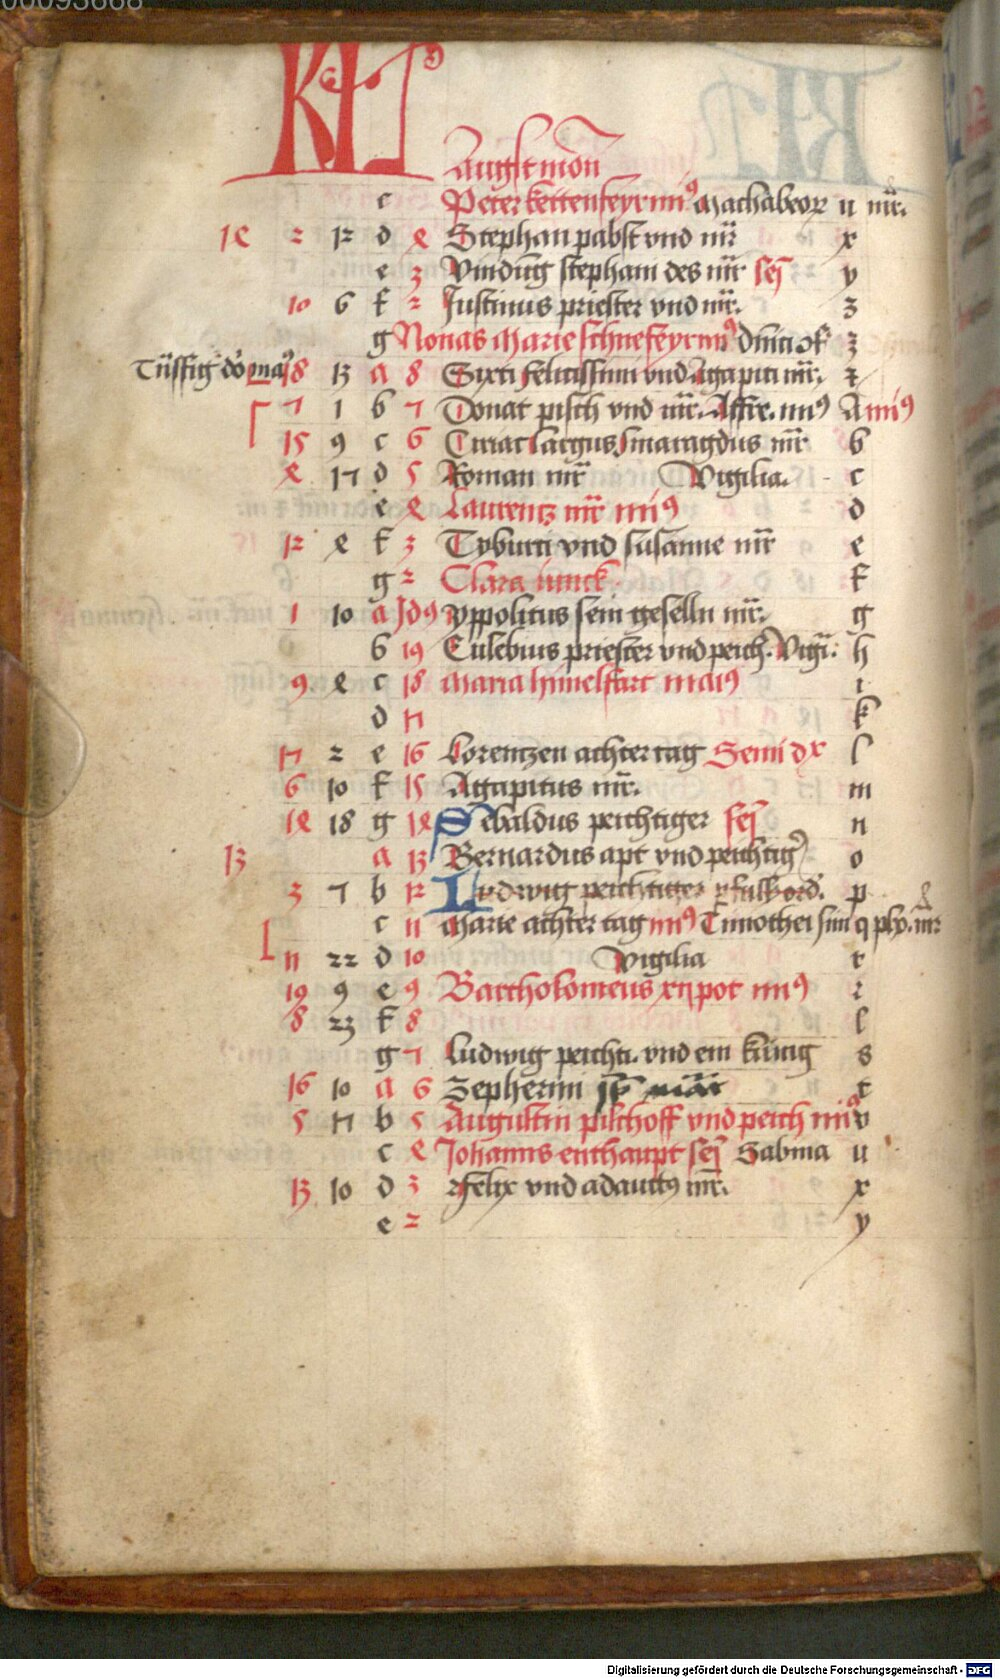 00093668
KL
Augstmon
c Peter kettenfeyr mi⁹ Machabeoꝝ u mr̄.
14 2 12 d 4 Stephan pabst vnd mr̄ x
e 3 Vindūg stephani des mr̄ y
10 6 f 2 Justinus priester vnd mr̄. z
g Nonas Marie schneefeyr mi⁹ Dominici
18 13 a 8 Sixti felicissimi vnd Agapiti mr̄.
7 1 b 7 Donat pisch vnd mr̄. Affre. mi⁹ A mi⁹
15 9 c 6 Ciriac largus smaragdus mr̄ b
4 17 d 5 Roman mr̄ Vigilia. c
e 4 Laurentz mr̄ mi⁹ d
12 4 f 3 Tyburti vnd susanne mr̄ e
g 2 Clara iunck. f
1 10 a Jd⁹ yppolitus sein geselln mr̄. g
b 19 Eusebius priester vnd peich. Vigī. h
9 4 c 18 Maria himelfart mai⁹ i
d 17 k
17 2 e 16 Lorentzen achter tag Semi dx l
6 10 f 15 Agapitus mr̄. m
14 18 g 14 Sebaldus peichtiger n
13 a 13 Bernardus apt vnd peichtig⁹ o
3 7 b 12 Ludwig peichtiger p
c 11 Marie achter tag mi⁹ Timothei q
11 22 d 10 Vigilia r
19 9 e 9 Bartholomeus xijpot mi⁹ r
8 23 f 8 s
g 7 Ludwig peicht. vnd ein künig s
16 10 a 6 Zepherin t
5 17 b 5 Augustin pischoff vnd peich mi⁹ v
c 4 Johanns enthaupt Sabina u
13 10 d 3 Felix vnd adauct⁹ mr̄. x
e 2 y
Digitalisierung gefördert durch die Deutsche Forschungsgemeinschaft - DFG